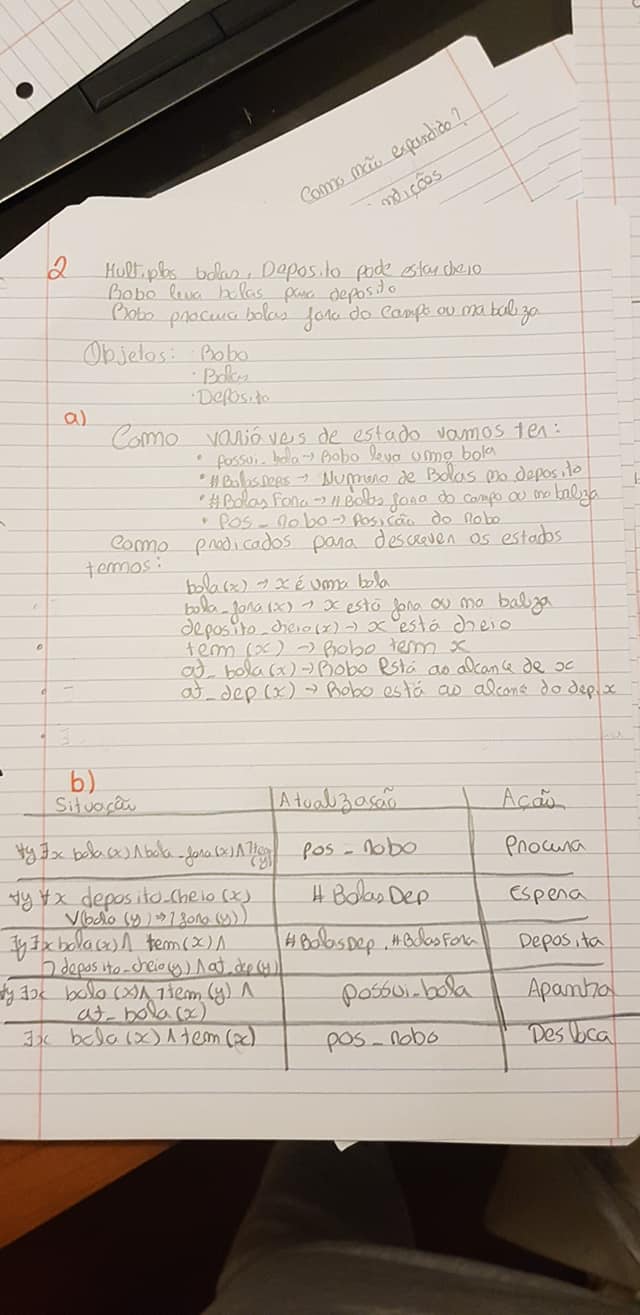 Como não expandido?
ndições
2 Multiplas bolas, Deposito pode estar cheio
Robo leva bolas para deposito
Robo procura bolas fora do campo ou na baliza
Objetos: Robo
· Bolas
· Deposito
a)
Como variáveis de estado vamos ter:
• possui_bola → Robo leva uma bola
• #BolasDeps → Numero de Bolas no deposito
• #BolasFora → # Bolas fora do campo ou na baliza
• pos_robo → Posição do robo
Como predicados para descrever os estados
temos:
bola(x) → x é uma bola
bola_fora(x) → x está fora ou na baliza
deposito_cheio(x) → x está cheio
tem(x) → Robo tem x
at_bola(x) → Robo está ao alcance de x
at_dep(x) → Robo está ao alcance do dep. x
b)
Situação Atualização Ação
∀y ∃x bola(x) ∧ bola_fora(x) ∧ ¬tem(y) pos_robo Procura
∀y ∀x deposito_cheio(x) #BolasDep Espera
∨(bola(y) ⇒ ¬fora(y))
∃y ∃x bola(x) ∧ tem(x) ∧ #BolasDep, #BolasFora Deposita
¬deposito_cheio(y) ∧ at_dep(y)
∀y ∃x bola(x) ∧ ¬tem(y) ∧ possui_bola Apanha
at_bola(x)
∃x bola(x) ∧ tem(x) pos_robo Desloca